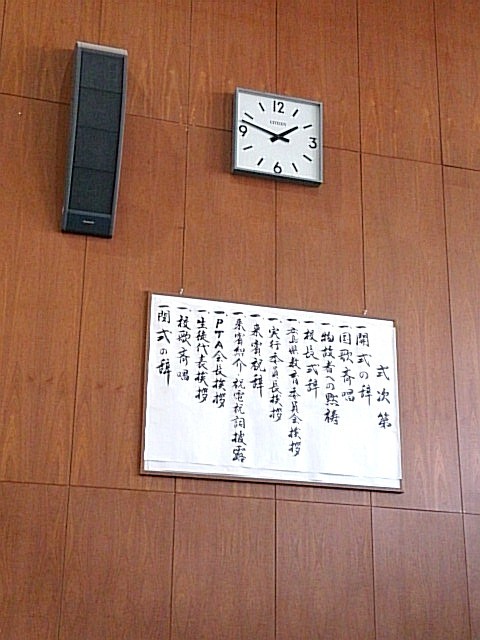 12
CITIZEN
9
3
6
式次第
一開式の辞
一国歌斉唱
一物故者への黙祷
一校長式辞
一兵庫県教育委員会挨拶
一実行委員長挨拶
一来賓祝辞
一来賓紹介 祝電祝詞披露
一PTA会長挨拶
一生徒代表挨拶
一校歌斉唱
一閉式の辞